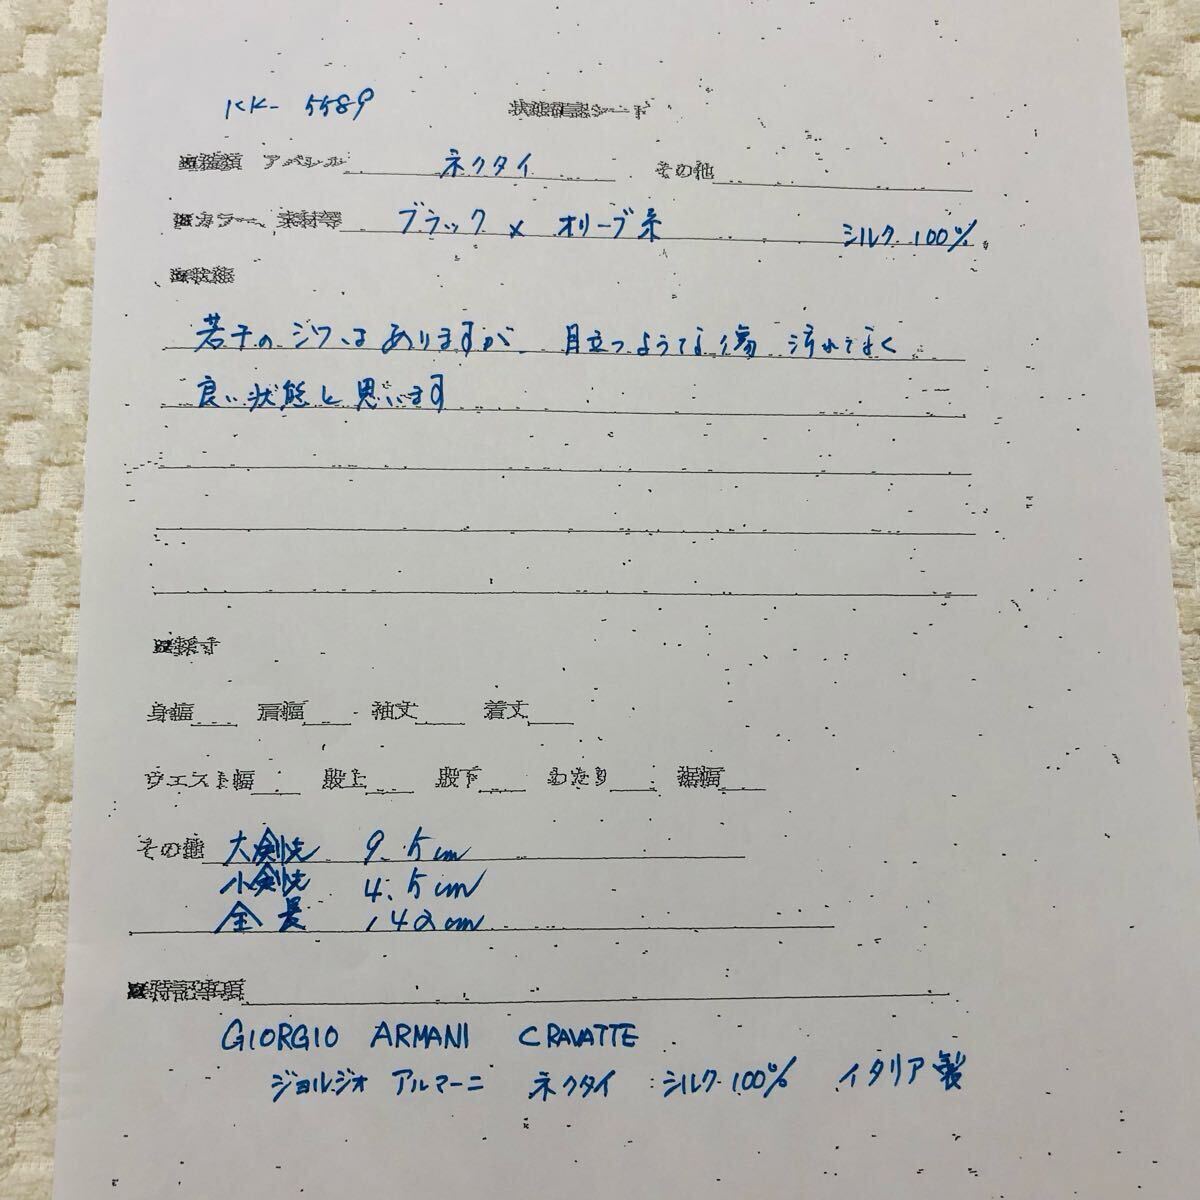 KK- 5589 状態確認シート
■種類 アパレル ネクタイ その他
■カラー、素材等 ブラック × オリーブ系 シルク 100%
■状態
若干のシワはありますが 目立つようなな傷 汚れでなく
良い状態と思います
■採寸
身幅 肩幅 袖丈 着丈
ウエスト幅 股上 股下 わたり 裾幅
その他 大剣先 9.5cm
小剣先 4.5cm
全長 142cm
■特記事項
GIORGIO ARMANI CRAVATTE
ジョルジオ アルマーニ ネクタイ シルク 100% イタリア製